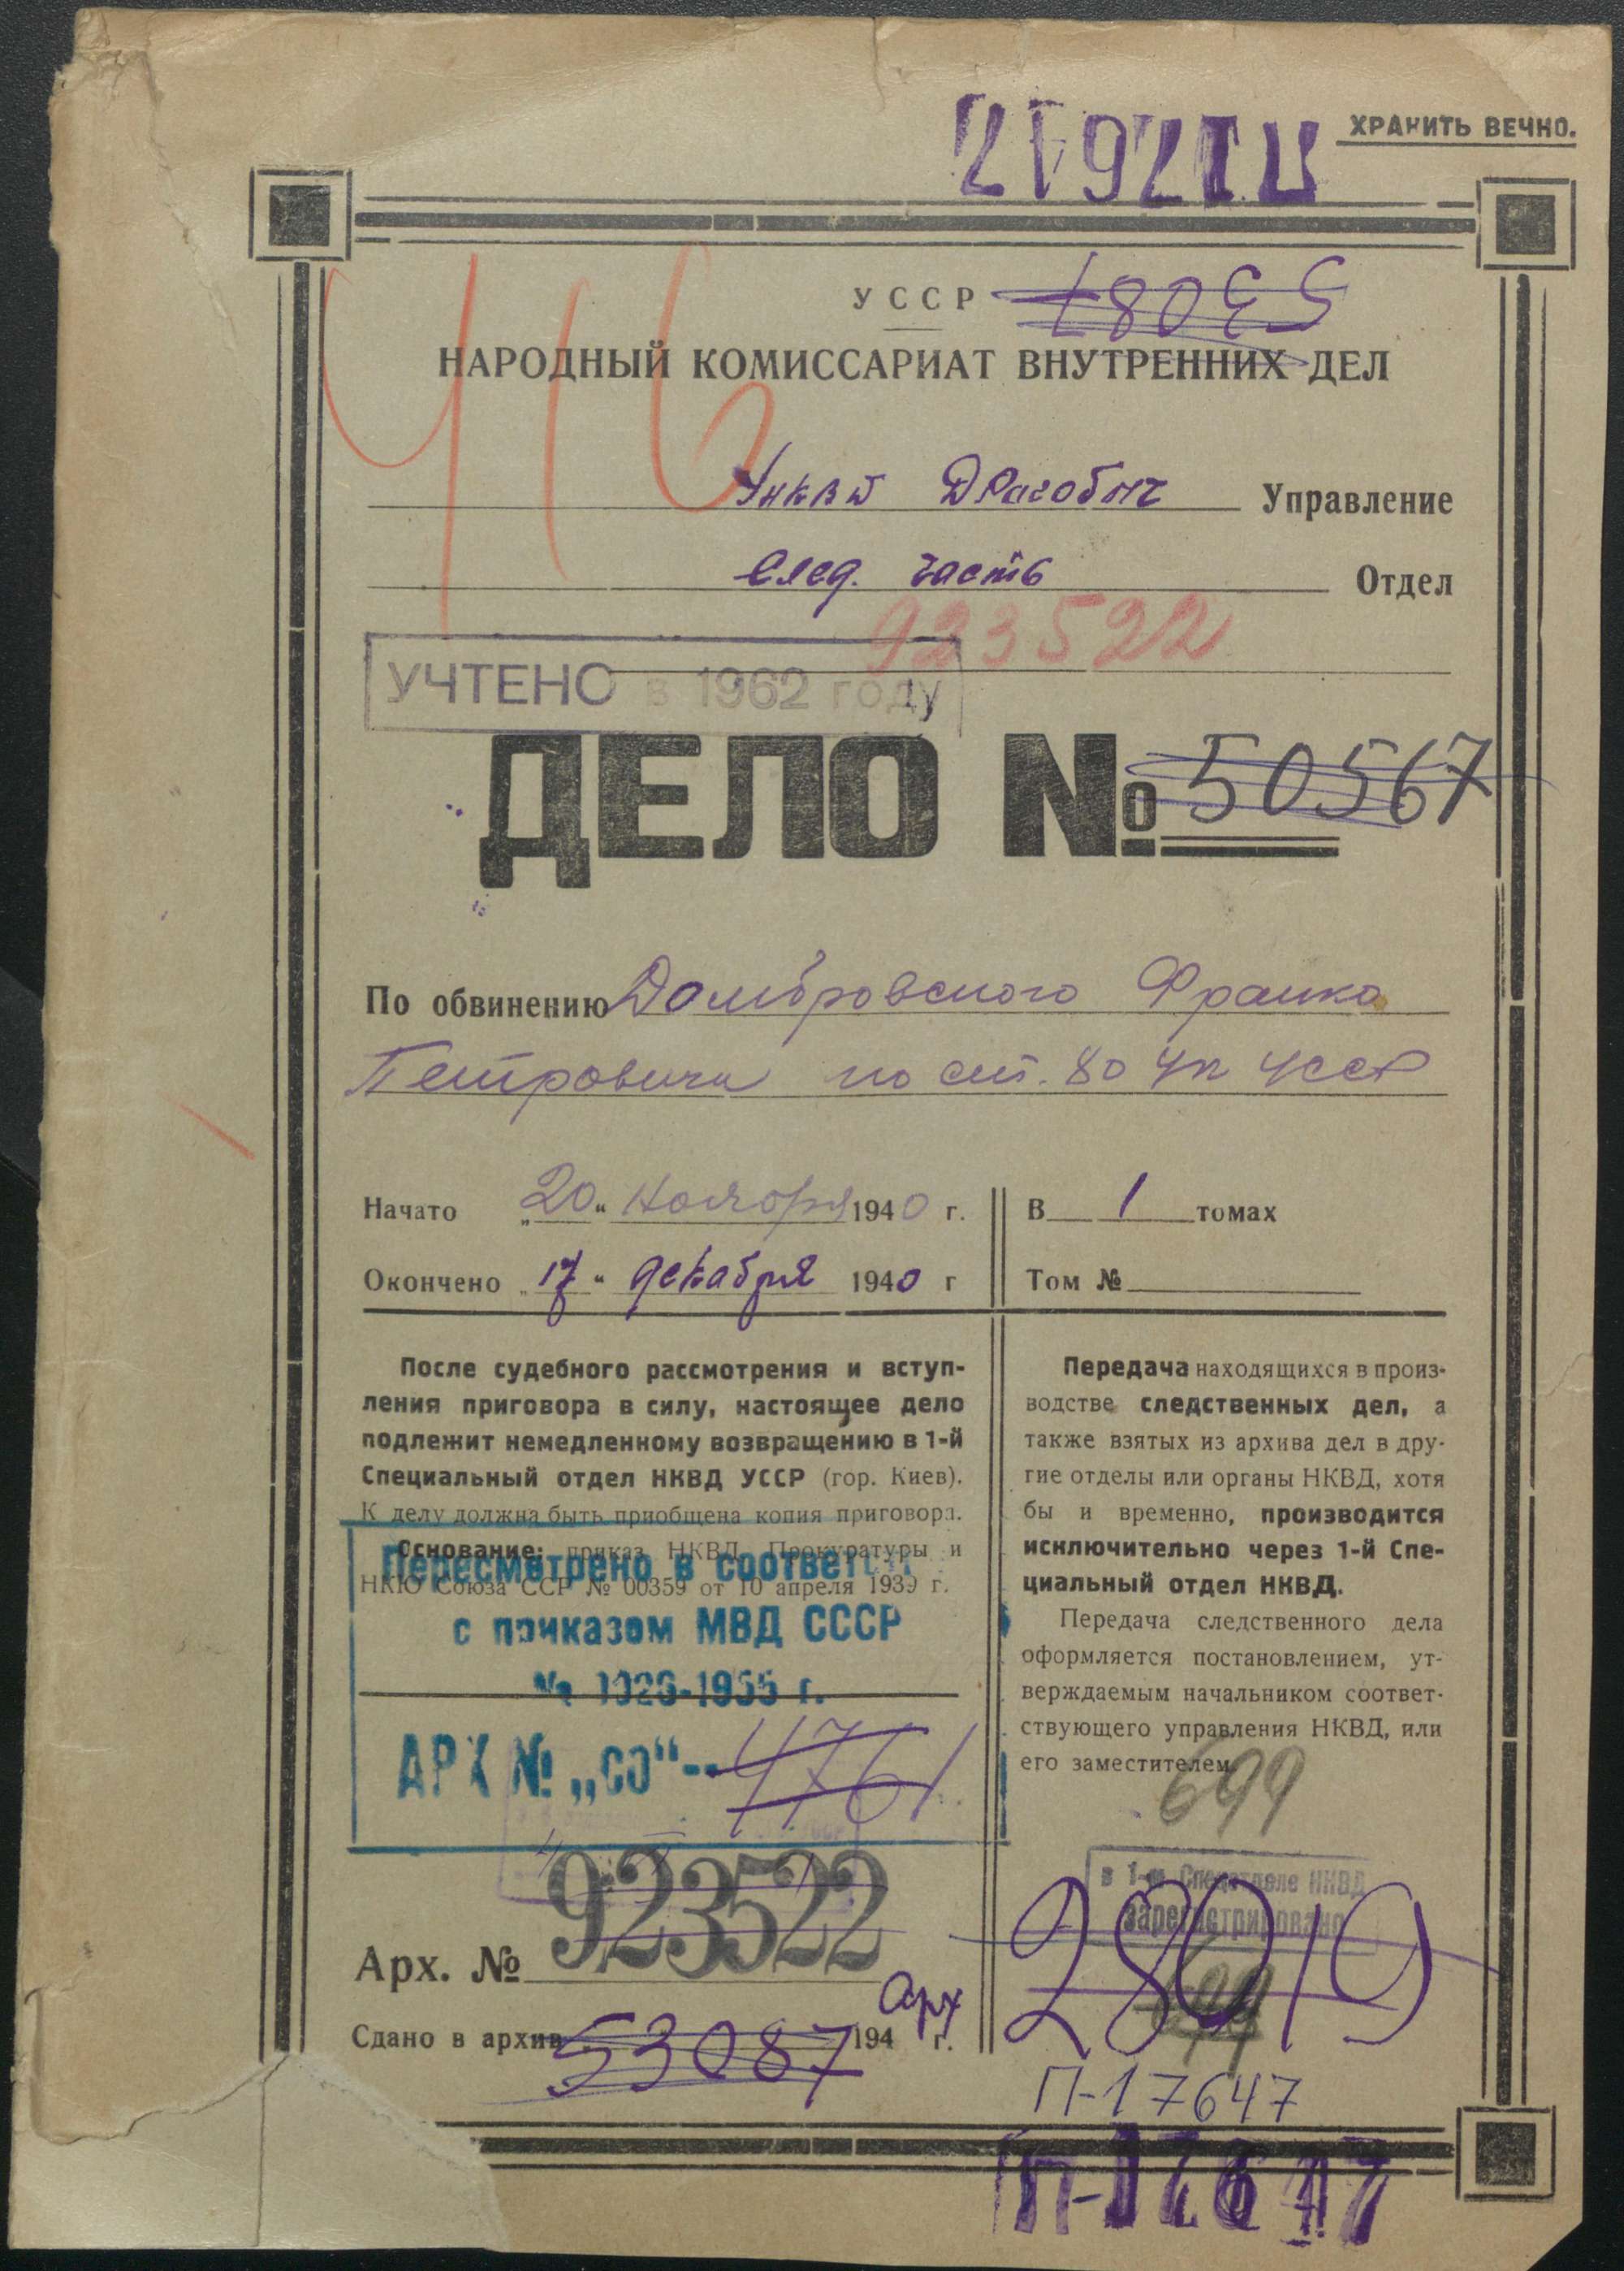 ХРАНИТЬ ВЕЧНО.
П-17647
УССР
53087
НАРОДНЫЙ КОМИССАРИАТ ВНУТРЕННИХ ДЕЛ
416
УНКВД Драгобыч Управление
след. часть Отдел
923522
УЧТЕНО в 1962 году
ДЕЛО № 50567
По обвинению Домбровского Франко
Петровича по ст. 80 УК УССР
Начато „20“ ноября 1940 г.
В 1 томах
Окончено „17“ декабря 1940 г
Том №
После судебного рассмотрения и вступ-
ления приговора в силу, настоящее дело
подлежит немедленному возвращению в 1-й
Специальный отдел НКВД УССР (гор. Киев).
К делу должна быть приобщена копия приговора.
Основание: приказ НКВД, Прокуратуры и
НКЮ Союза ССР № 00359 от 10 апреля 1939 г.
Передача находящихся в произ-
водстве следственных дел, а
также взятых из архива дел в дру-
гие отделы или органы НКВД, хотя
бы и временно, производится
исключительно через 1-й Спе-
циальный отдел НКВД.
Передача следственного дела
оформляется постановлением, ут-
верждаемым начальником соответ-
ствующего управления НКВД, или
его заместителем.
Пересмотрено в соответ
с приказом МВД СССР
№ 1026-1955 г.
АРХ № „СО“-- 4761
699
в 1-м Спецотделе НКВД
зарегистрировано
28019
699
Арх. № 923522
арх
Сдано в архив 53087 194 г.
П-17647
П-17647